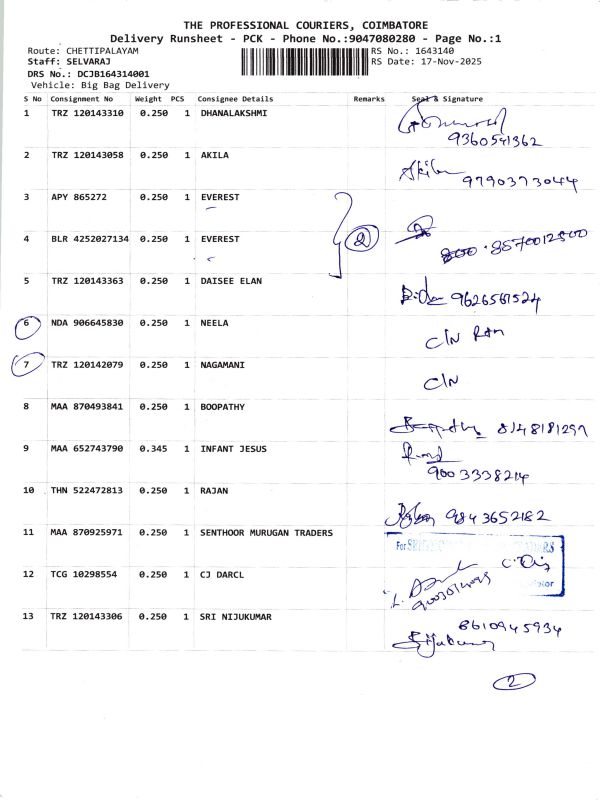 THE PROFESSIONAL COURIERS, COIMBATORE
Delivery Runsheet - PCK - Phone No.:9047080280 - Page No.:1
Route: CHETTIPALAYAM RS No.: 1643140
Staff: SELVARAJ RS Date: 17-Nov-2025
DRS No.: DCJB164314001
Vehicle: Big Bag Delivery
S No Consignment No Weight PCS Consignee Details Remarks Seal & Signature
1 TRZ 120143310 0.250 1 DHANALAKSHMI
9360541362
2 TRZ 120143058 0.250 1 AKILA Akila 9790373044
3 APY 865272 0.250 1 EVEREST
2
4 BLR 4252027134 0.250 1 EVEREST 8570012500
5 TRZ 120143363 0.250 1 DAISEE ELAN 9626561524
6 NDA 906645830 0.250 1 NEELA C/N
7 TRZ 120142079 0.250 1 NAGAMANI C/N
8 MAA 870493841 0.250 1 BOOPATHY 8148181297
9 MAA 652743790 0.345 1 INFANT JESUS
9003338214
10 THN 522472813 0.250 1 RAJAN 9843652182
11 MAA 870925971 0.250 1 SENTHOOR MURUGAN TRADERS For
12 TCG 10298554 0.250 1 CJ DARCL
13 TRZ 120143306 0.250 1 SRI NIJUKUMAR 8610945934
2